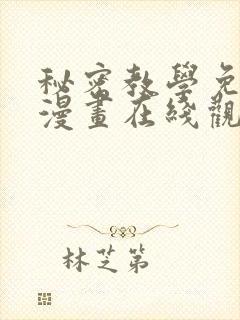 秘密教學免
漫畫在綫觀
林芝第